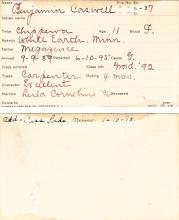 Name Benjamin Caswell 6-37
Indian name
Tribe Chippewa Age 11 Blood F.
Agency White Earth, Minn.
Father Migagence
Arrived 9-9-89 Departed 6-10-95 Cause G.
Class entered Class left Grad. '92
Trade Carpenter Outing 4 mos.
Character Excellent
Married Leila Cornelius Deceased
Add - Cass Lake, Minn.